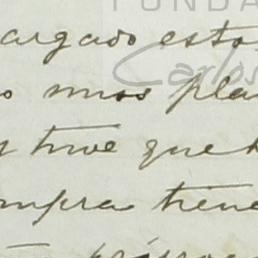 FUNDA
Carlos
argado esto
o unos pla
tuve que h
mpra tiene